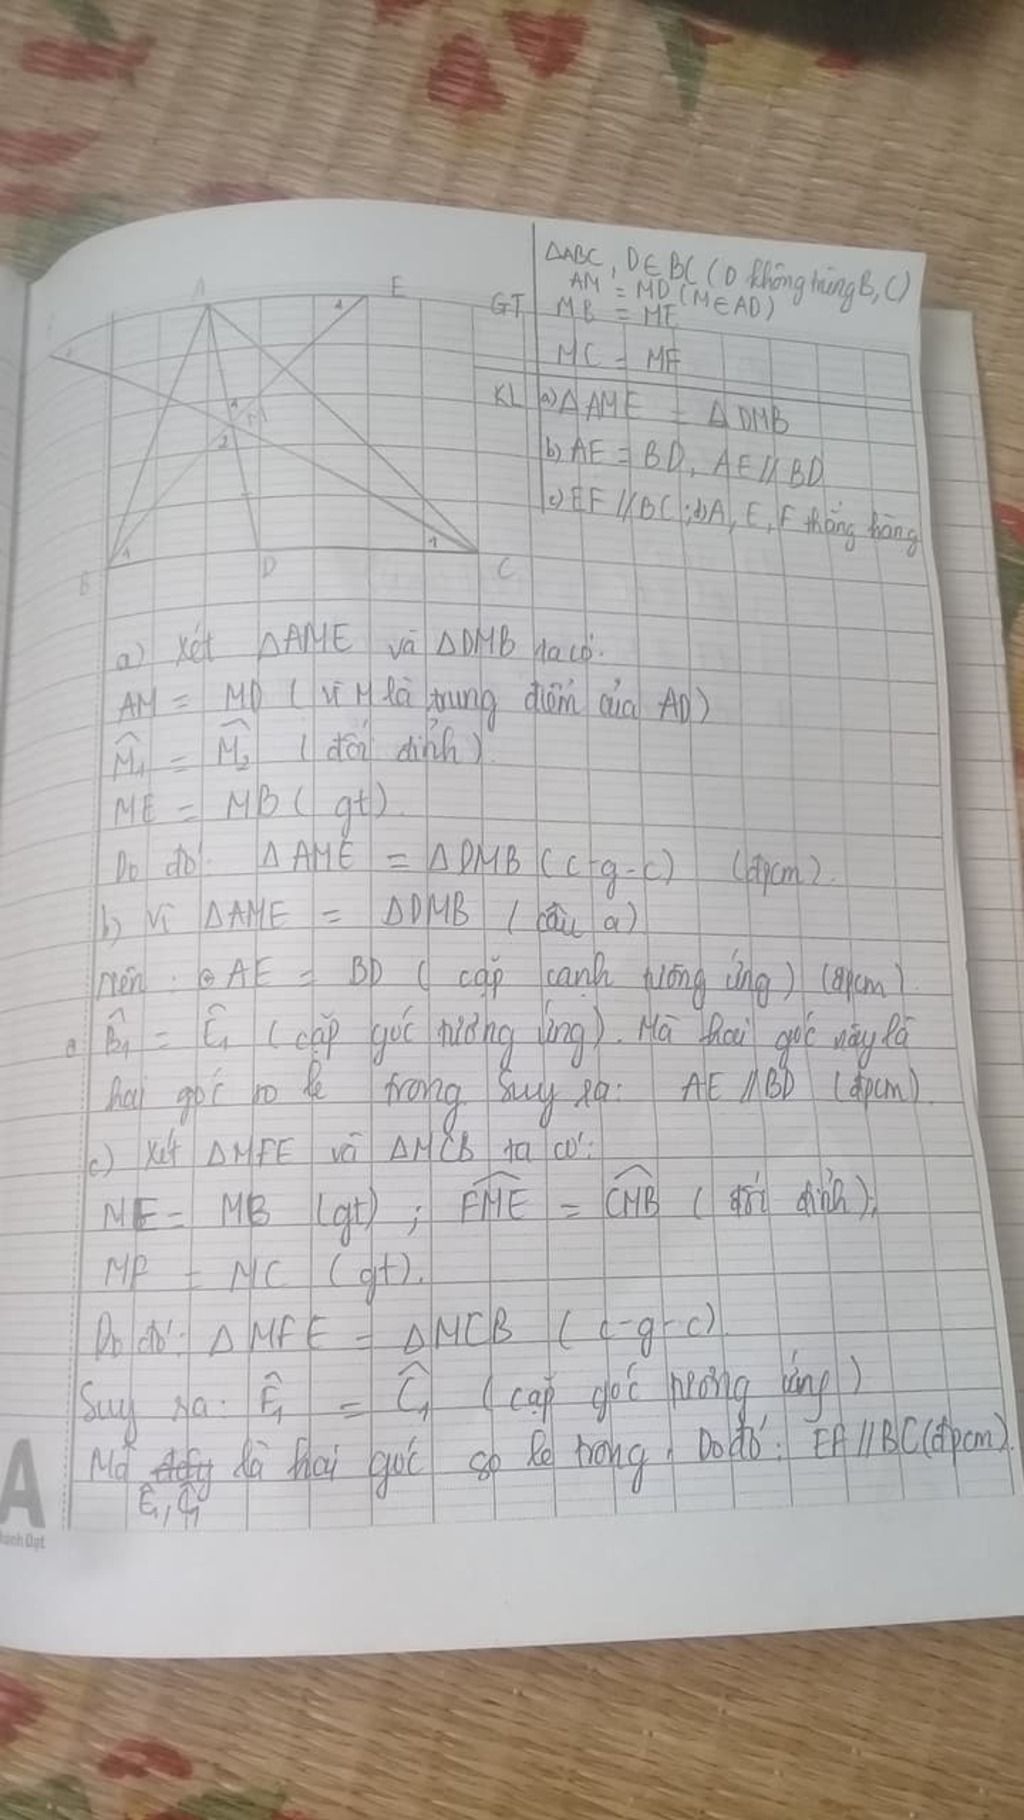 A E
B D C
GT
ΔABC, D∈BC (D không trùng B, C)
AM = MD (M∈AD)
MB = ME
MC = MF
KL a) ΔAME = ΔDMB
b) AE = BD, AE // BD
c) EF // BC; d) A, E, F thẳng hàng
a) Xét ΔAME và ΔDMB ta có:
AM = MD (vì M là trung điểm của AD)
M̂₁ = M̂₂ (đối đỉnh)
ME = MB (gt).
Do đó: ΔAME = ΔDMB (c-g-c) (đpcm).
b) Vì ΔAME = ΔDMB (câu a)
nên: AE = BD (cặp cạnh tương ứng) (đpcm).
B̂₁ = Ê₁ (cặp góc tương ứng). Mà hai góc này là
hai góc so le trong. Suy ra: AE // BD (đpcm).
c) Xét ΔMFE và ΔMCB ta có:
ME = MB (gt); FME = CMB (đối đỉnh);
MF = MC (gt).
Do đó: ΔMFE = ΔMCB (c-g-c)
Suy ra: = Ĉ₁ (cặp góc tương ứng)
Mà là hai góc so le trong. Do đó: EF // BC (đpcm).
A